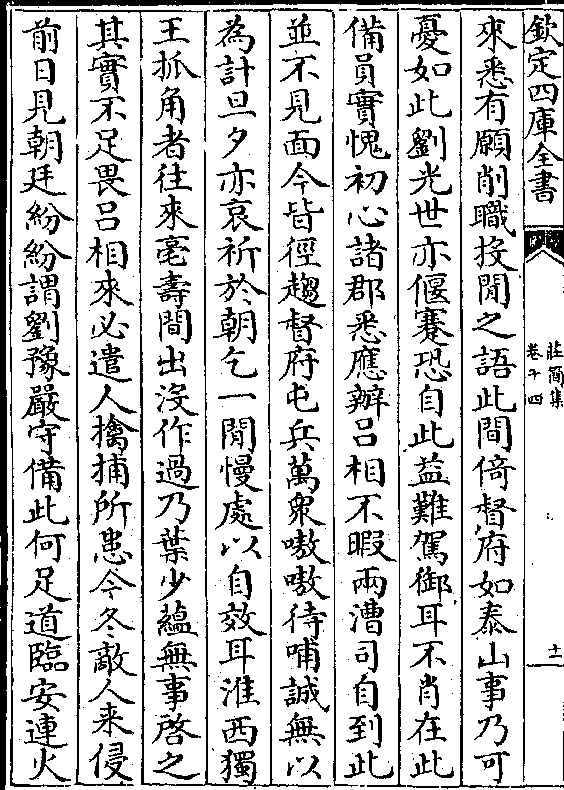 欽定四庫全書
莊簡集
卷十四
十一
來悉有願削職投閒之語此間倚督府如泰山事乃可
憂如此劉光世亦偃蹇恐自此益難駕御耳不肖在此
備員實愧初心諸郡悉應辦吕相不暇兩漕司自到此
並不見面今皆徑趨督府屯兵萬衆嗷嗷待哺誠無以
為計旦夕亦哀祈於朝乞一閒慢處以自效耳淮西獨
王抓角者往來亳壽間出沒作過乃葉少蘊無事啓之
其實不足畏吕相來必遣人擒捕所患今冬敵人来侵
前日見朝廷紛紛謂劉豫嚴守備此何足道臨安連火